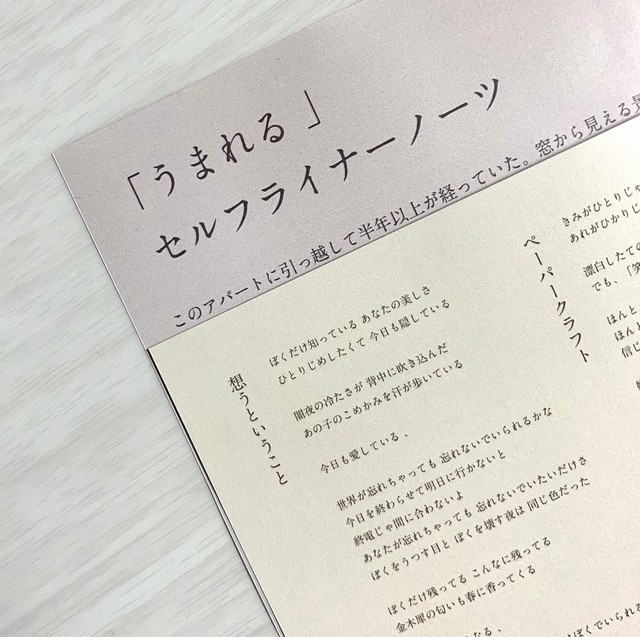 「うまれる」
セルフライナーノーツ
このアパートに引っ越して半年以上が経っていた。窓から見える
想うということ
ぼくだけ知っている あなたの美しさ
ひとりじめしたくて 今日も隠している
闇夜の冷たさが 背中に吹き込んだ
あの子のこめかみを汗が歩いている
今日も愛している、
世界が忘れちゃっても 忘れないでいられるかな
今日を終わらせて明日に行かないと
終電じゃ間に合わないよ
あなたが忘れちゃっても 忘れないでいたいだけさ
ぼくをうつす目と ぼくを壊す夜は 同じ色だった
ぼくだけ残ってる こんなに残ってる
金木犀の匂いも春に香ってくる
ペーパークラフト
きみがひとりじゃ
あれがひかりじ
漂白したての
でも、「笑
ほんと
ほんと
信じ
ぼくでいられる